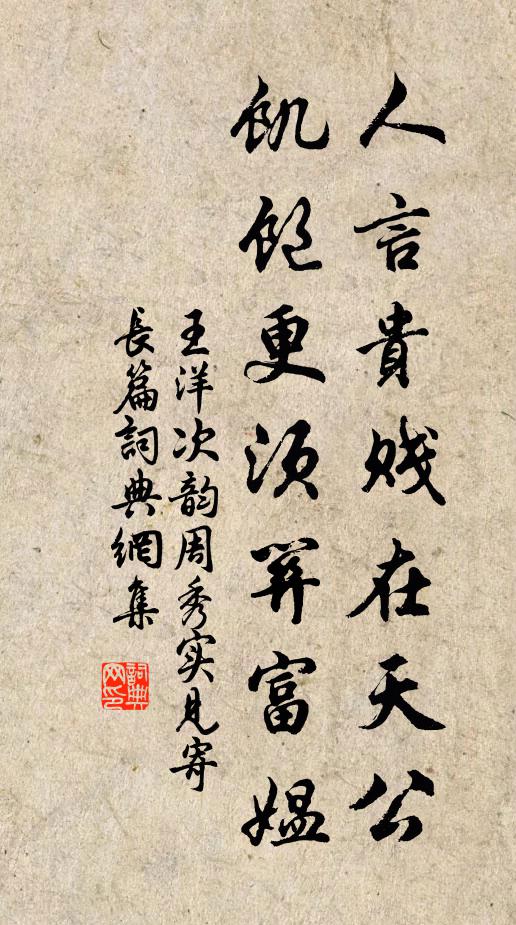 人言貴賤在天公
飢飽更須筭富媼
王洋次韵周秀实見寄
長篇詞典網集
詞典
网印